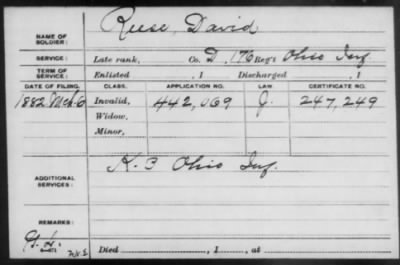 NAME OF SOLDIER: Reese, David
SERVICE: Late rank, Co. D, 176 Reg't Ohio Inf.
TERM OF SERVICE: Enlisted , 1 Discharged , 1
DATE OF FILING. CLASS. APPLICATION NO. LAW CERTIFICATE NO.
1882 Mch. 6 Invalid, 442,069 J. 247,249
Widow,
Minor,
ADDITIONAL SERVICES: K. 3 Ohio Inf.
REMARKS:
Died , 1 , at